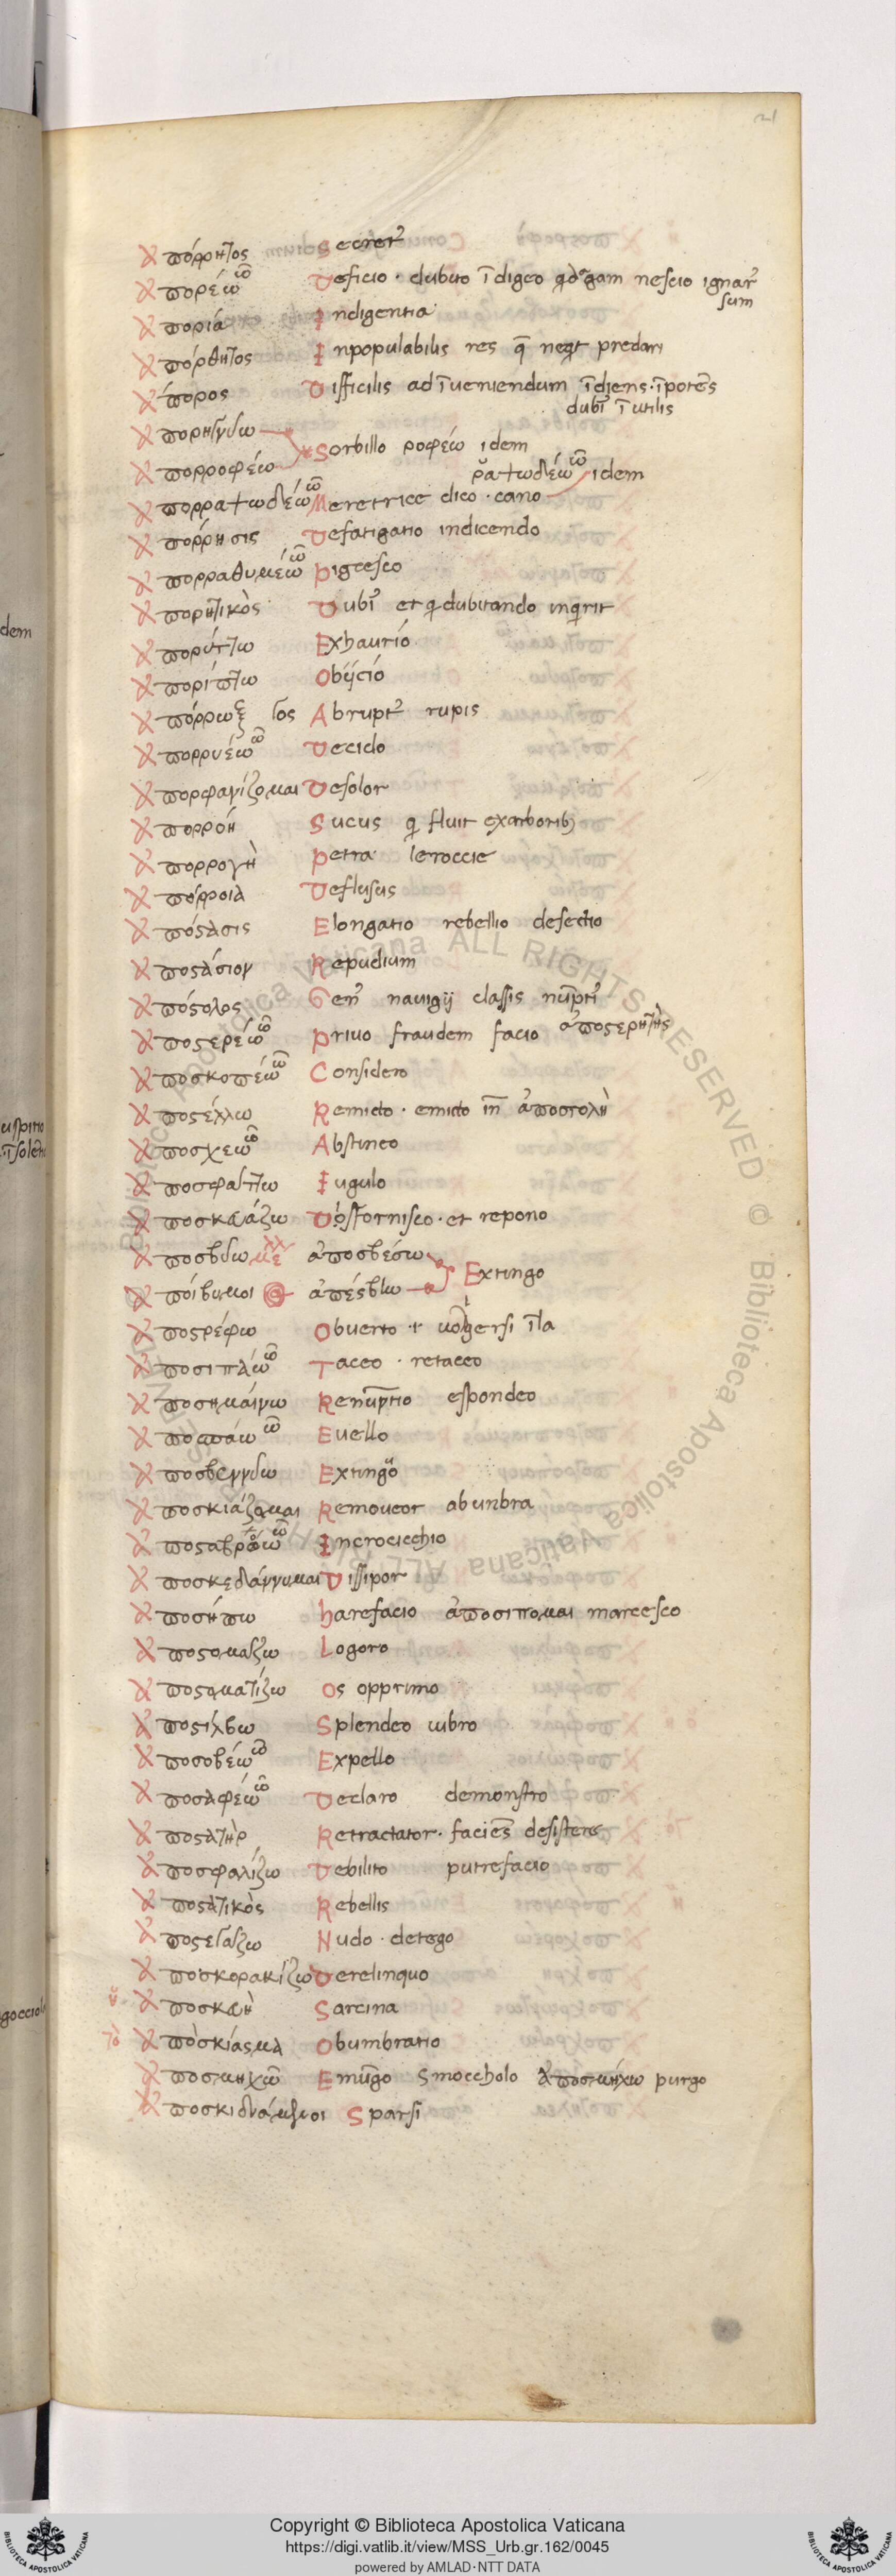 21
ἀπόρρητος Secret᾽
ἀπορέω ῶ Deficio · dubito īdigeo nescio ignar᾽
sum
ἀπορία Indigentia
ἀπόρθητος Inpopulabilis res q̄ predari
ἄπορος Difficilis ad īueniendum īdigens · īpotēs
dubi᾽ īutilis
ἀπορροφέω Sorbillo ροφέω idem
ῥαψωδέω ῶ idem
ἀπορραψωδέω ῶ Meretrice dico · cano
ἀπόρρησις Defatigatio indicendo
ἀπορραθυμέω ῶ Pigresco
ἀπορητικὸς Dubi᾽ et qi dubitando inqirit
ἀπορύττω Exhaurió
ἀπορίπτω Obijció
ἀπόρρωξ γος Abrupt᾽ rupis
ἀπορρυέω ῶ Decido
ἀπορφανίζομαι Desolor
ἀπορροή Sucus qi fluit ex arborib;
ἀπορρογὴ Petra le roccie
ἀπόρροια Deflusus
ἀπόστασις Elongatio rebellio defectio
ἀποστάσιον Repudium
ἀπόστολος Gen᾽ nauigij classis
ἀποστερέω ῶ Priuo fraudem facio ἀποστερητὴς
ἀποσκοπέω ῶ Considero
ἀποστέλλω Remicto · emicto īn ἀποστολὴ
ἀποσχεω ῶ Abstineo
ἀποσφάττω Iugulo
ἀποσκευάζω et repono
ἀποσβέσω
Extingo
ἀπέσβω
ἀποστρέφω Obuerto
ἀποσιπάω ῶ Taceo · retaceo
ἀποσημαίνω Renūntio espondeo
ἀποσπάω ῶ Euello
ἀποσβεννύω Extingo
ἀποσκιάζομαι Remoueor ab unbra
ἀποσταβρόω ῶ Incrocicchio
ἀποσκεδάννυμαι Dissipor
ἀποσήπω harefacio ἀποσιπομαι marcesco
ἀποστομάζω Logoro
ἀποστοματίζω Os opprimo
ἀποστίλβω Splendeo uibro
ἀποσοβέω ῶ Expello
ἀποσαφέω ῶ Declaro demonstro
ἀποστατὴρ Retractator · faciēs desistere
ἀποσφαλίζω Debilito putrefacio
ἀποστατικὸς Rebellis
ἀποστεγάζω Nudo · detego
ἀποσκορακίζω Derelinquo
ἡ ἀποσκευὴ Sarcina
τὸ ἀποσκίασμα Obumbratio
ἀποσμηχῶ Emūgo Smoccholo ἀποσμήχω purgo
ἀποσκιδνάμενοι Sparsi
dem
gocciol
Copyright © Biblioteca Apostolica Vaticana
https://digi.vatlib.it/view/MSS_Urb.gr.162/0045
powered by AMLAD·NTT DATA